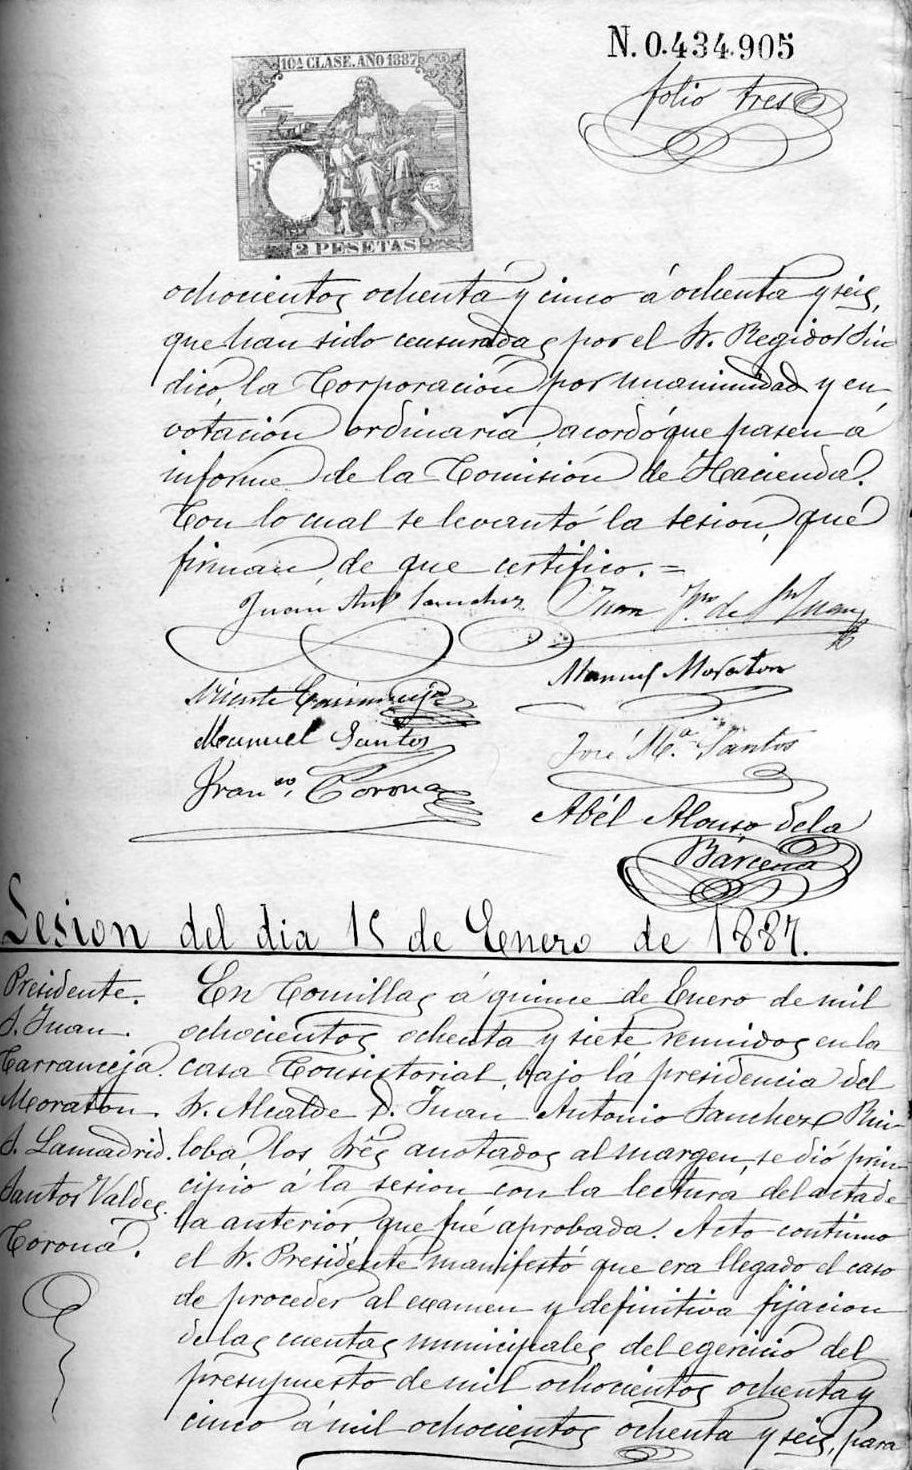 N. 0.434.905
folio tres
10ª CLASE. AÑO 1887
2 PESETAS
ochocientos ochenta y cinco á ochenta y seis,
que han sido censuradas por el Sr. Regidor Sin
dico, la Corporacion por unanimidad y en
votacion ordinaria acordó que pasen á
informe de la Comision de Hacienda.
Con lo cual se levantó la sesion, que
firman, de que certifico. =
Juan Ant Sanchez
Juan de Sn Juan
Manuel Moraton
Vicente
Manuel Santos
José M.ª Santos
Fran.co Corona
Abél Alonso de la
Bárcena
Sesion del dia 15 de Enero de 1887.
Presidente.
S. Juan.
Carranceja.
Moraton.
S. Lamadrid.
Santos Valdes.
Corona.
En Comillas á quince de Enero de mil
ochocientos ochenta y siete reunidos en la
casa Consistorial, bajo la presidencia del
Sr. Alcalde D. Juan Antonio Sanchez Rui-
loba los Sres anotados al margen, se dió prin
cipio á la sesion con la lectura del acta de
la anterior que fué aprobada. Acto continuo
el Sr. Presidente manifestó que era llegado el caso
de proceder al examen y definitiva fijacion
de las cuentas municipales del egercicio del
presupuesto de mil ochocientos ochenta y
cinco á mil ochocientos ochenta y seis, para